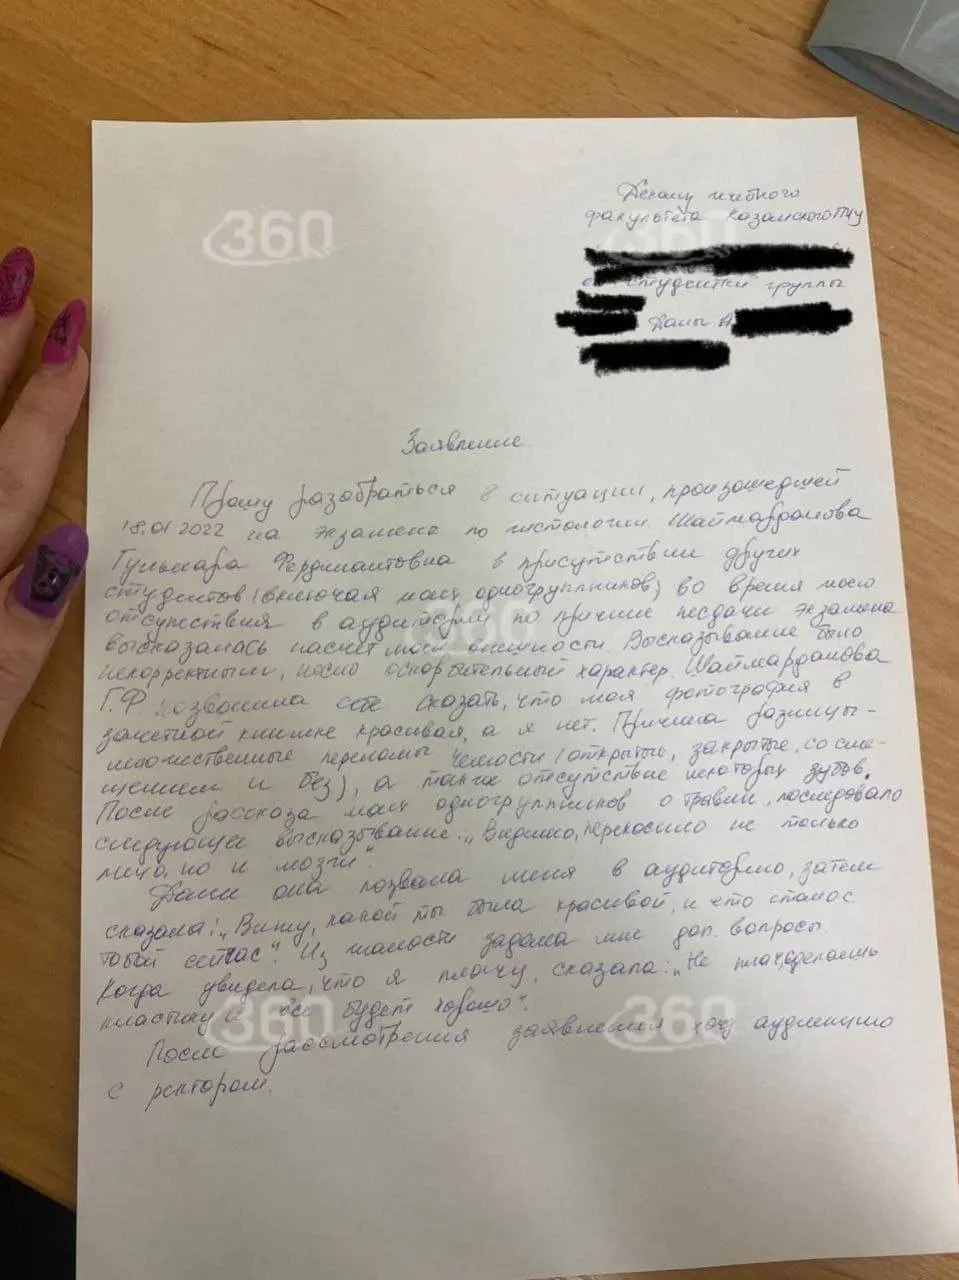 360
Декану лечебного
факультета Казанского ГМУ
360
студентки группы
Даны А
Заявление.
Прошу разобраться в ситуации, произошедшей
18.01.2022 на экзамене по гистологии. Шаймарданова
Гульнара Фердинантовна в присутствии других
студентов (включая моих одногруппников) во время моего
отсутствия в аудитории по причине несдачи экзамена
360
высказалась насчет моей внешности. Высказывание было
некорректным, носило оскорбительный характер. Шаймарданова
Г.Ф. позволила себе сказать, что моя фотография в
зачетной книжке красивая, а я нет. Причина разницы -
множественные переломы челюсти (открытые, закрытые, со сме-
щением и без), а также отсутствие некоторых зубов.
После рассказа моих одногруппников о травме, последовало
следующее высказывание: „Видимо, перекосило не только
лицо, но и мозги".
Далее она позвала меня в аудиторию, затем
сказала: „Вижу, какой ты была красивой, и что стало с
тобой сейчас". Из жалости задала мне доп. вопросы.
Когда увидела, что я плачу, сказала: „Не плачь, сделаешь
пластику и все будет хорошо".
360
360
После рассмотрения заявления хочу аудиенцию
с ректором.